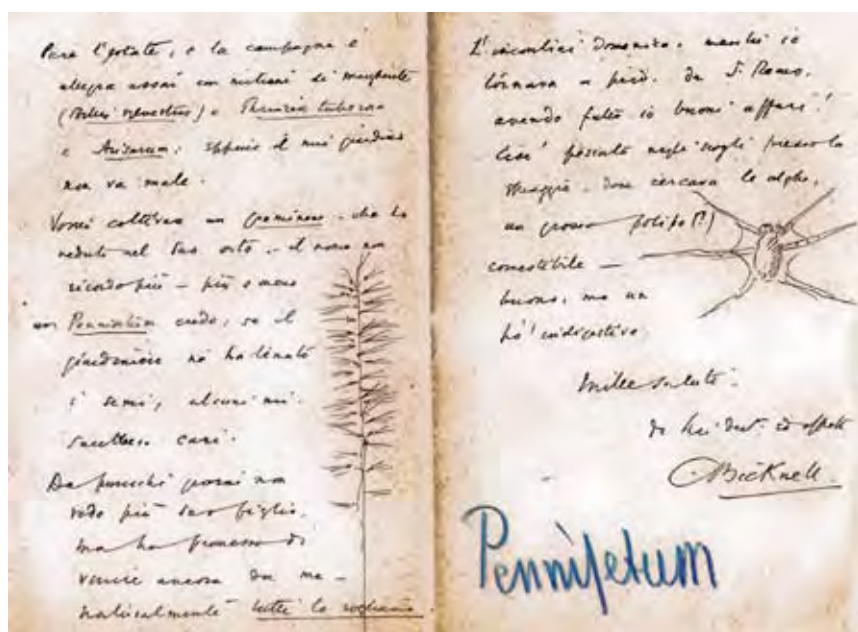 Pare l'estate, e la campagna è
allegra assai con milioni di margherite
(Bellis sylvestris) e Thrincia tuberosa
e Arisarum; eppure il mio giardino
non va male.
Vorrei coltivar un graminea - che ho
veduto nel Suo orto - il nome non
ricordo più - più o meno
un Pennisetum credo, se il
giardiniere ne ha tenuto
i semi, alcuni mi
cari.
Da parecchi giorni non
vedo più Suo figlio,
ma ha promesso di
venire ancora da me -
naturalmente tutti lo
L'incontrai Domenica, mentre io
tornava a piedi da S. Remo,
avendo fatto io buoni affari!
pescato negli scogli presso la
spiaggia - dove cercava le alghe,
un grosso polipo (!)
comestibile -
buono, ma un
po' indigestivo.
Mille saluti.
di Lei dev. ed affett
CBicknell
Pennisetum